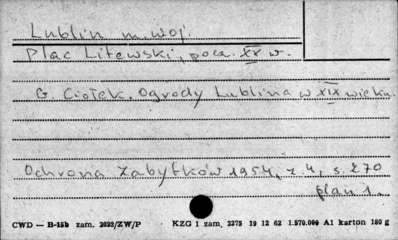 Lublin m. woj.
Plac Litewski, pocz. XX w.
G. Ciołek. Ogrody Lublina w XIX wieku.
Ochrona Zabytków 1954, z. 4, s. 270
plan 1.
CWD — B-15b zam. 2022/ZW/P KZG 1 zam. 2275 19 12 62 1.570.000 A1 karton 180 g